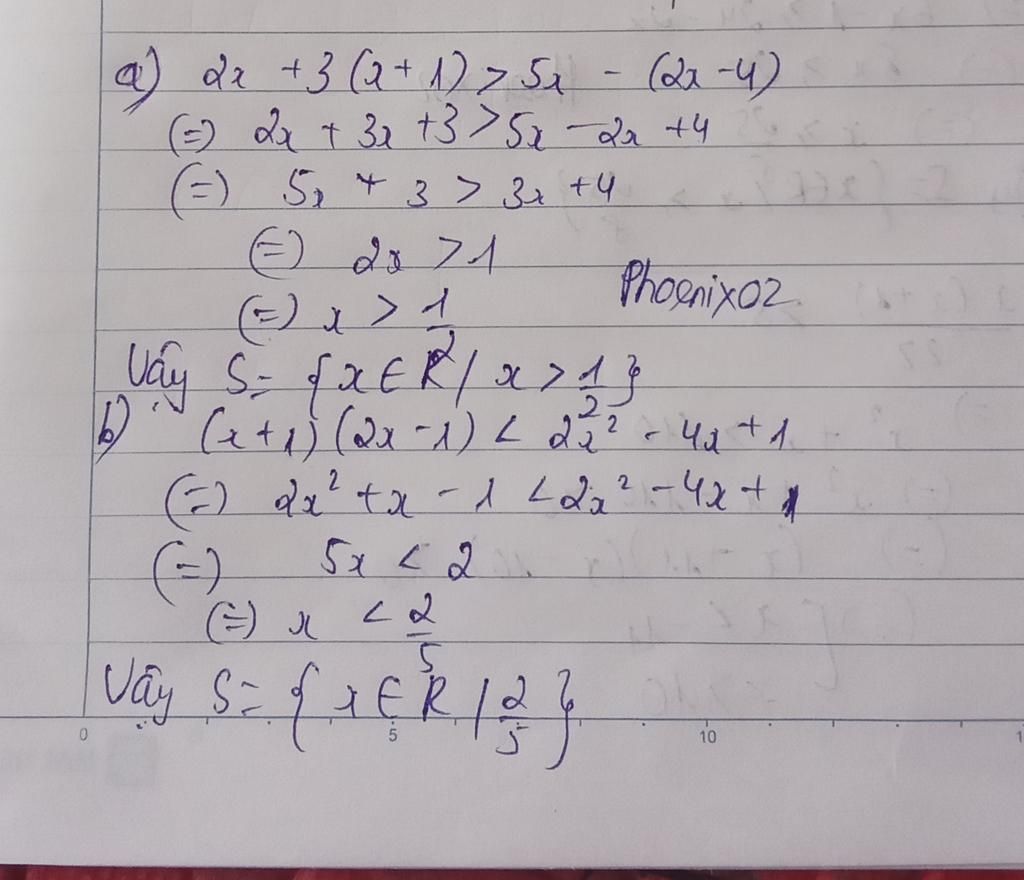 a) 2x + 3 (x + 1) > 5x - (2x - 4)
(=) 2x + 3x + 3 > 5x - 2x + 4
(=) 5x + 3 > 3x + 4
(=) 2x > 1
(=) x > 1/2
Phoenix02
Vậy S = {x ∈ R / x > 1/2}
b) (x + 1) (2x - 1) < 2x² - 4x + 1
(=) 2x² + x - 1 < 2x² - 4x + 1
(=) 5x < 2
(=) x < 2/5
Vậy S = {x ∈ R / 2/5}
0 5 10